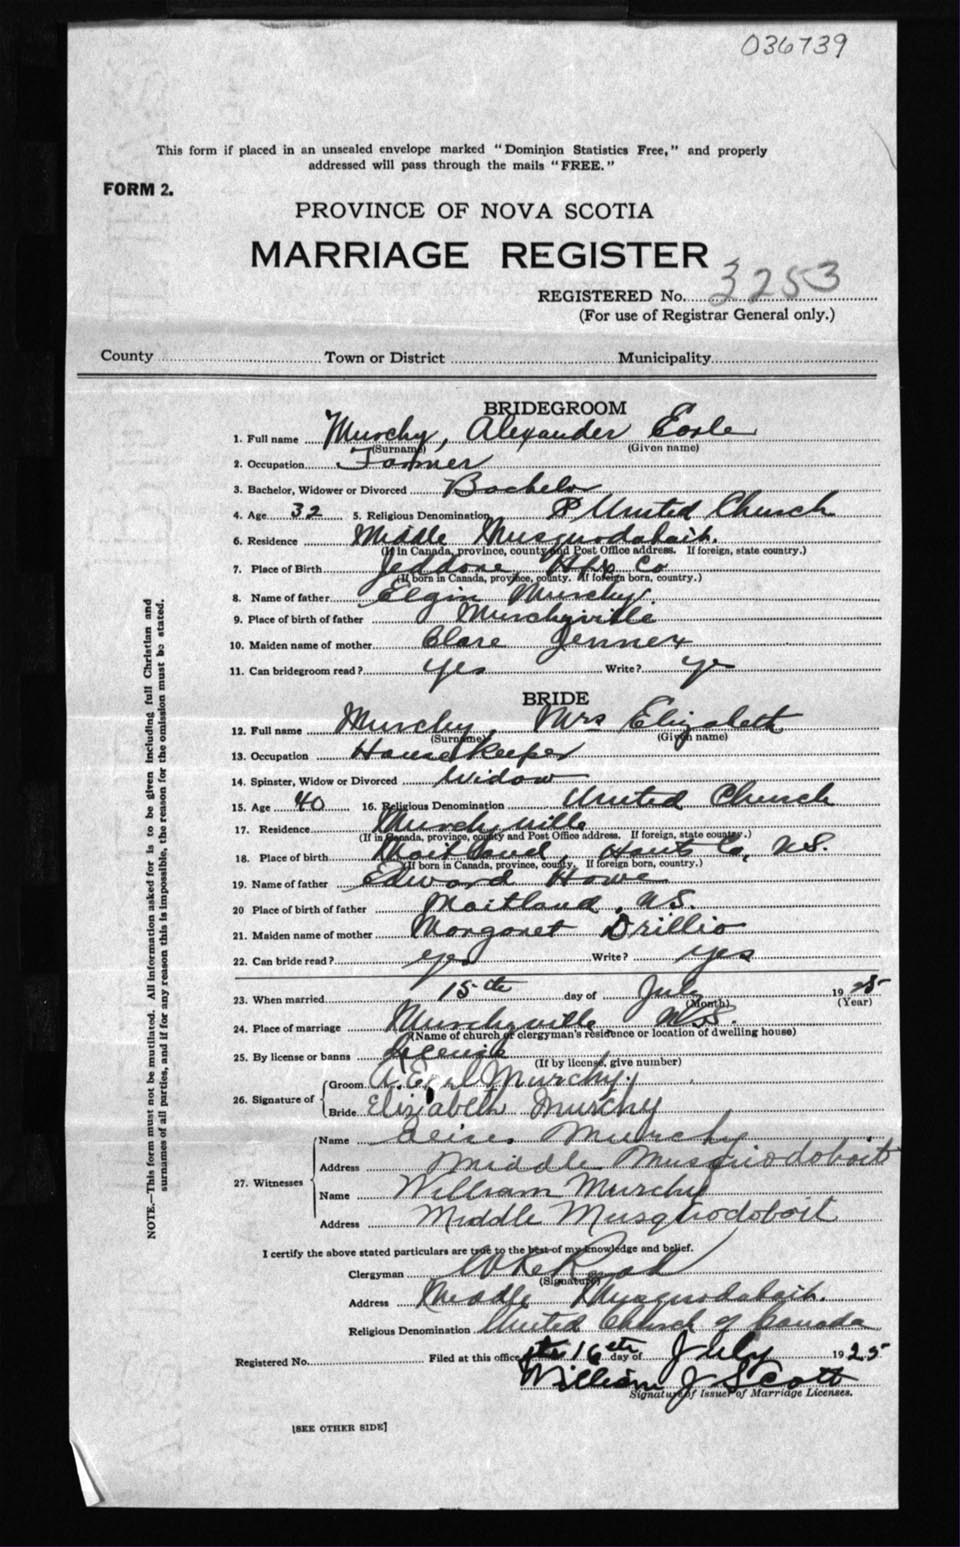 036739
This form if placed in an unsealed envelope marked "Dominion Statistics Free," and properly
addressed will pass through the mails "FREE."
FORM 2.
PROVINCE OF NOVA SCOTIA
MARRIAGE REGISTER
REGISTERED No. 3253
(For use of Registrar General only.)
County Town or District Municipality
BRIDEGROOM
1. Full name Murchy, Alexander Earle
(Surname) (Given name)
2. Occupation Farmer
3. Bachelor, Widower or Divorced Bachelor
4. Age 32 5. Religious Denomination United Church
6. Residence Middle Musquodoboit.
(If in Canada, province, county and Post Office address. If foreign, state country.)
7. Place of Birth Jeddore, Hfx Co
(If born in Canada, province, county. If foreign born, country.)
8. Name of father Elgin Murchy.
9. Place of birth of father Murchyville
10. Maiden name of mother Clare Jennex
11. Can bridegroom read? yes Write? ye
BRIDE
12. Full name Murchy, Mrs Elizabeth
(Surname) (Given name)
13. Occupation House Keeper
14. Spinster, Widow or Divorced Widow
15. Age 40 16. Religious Denomination United Church
17. Residence Murchyville
(If in Canada, province, county and Post Office address. If foreign, state country.)
18. Place of birth Maitland, Hants Co, N.S.
(If born in Canada, province, county. If foreign born, country.)
19. Name of father Edward Howe
20 Place of birth of father Maitland, N.S.
21. Maiden name of mother Margaret Drillio
22. Can bride read? yes Write? yes
23. When married 15th day of July 1925
(Month) (Year)
24. Place of marriage Murchyville N.S.
(Name of church or clergyman's residence or location of dwelling house)
25. By license or banns License
(If by license, give number)
26. Signature of
Groom A. Earl Murchy.
Bride Elizabeth Murchy
27. Witnesses
Name Murchy
Address Middle Musquodoboit
Name William Murchy
Address Middle Musquodoboit
I certify the above stated particulars are true to the best of my knowledge and belief.
Clergyman
(Signature)
Address Middle Musquodoboit.
Religious Denomination United Church of Canada
Registered No. Filed at this office the 16th day of July 1925
William J Scott
Signature of Issuer of Marriage Licenses.
[SEE OTHER SIDE]
NOTE.—This form must not be mutilated. All information asked for is to be given including full Christian and
surnames of all parties, and if for any reason this is impossible, the reason for the omission must be stated.